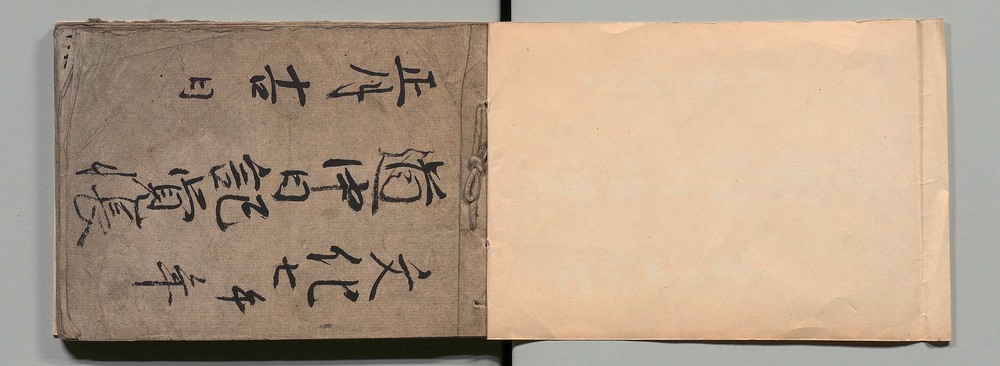 文化七午年
道中日記覚帳
正月吉日